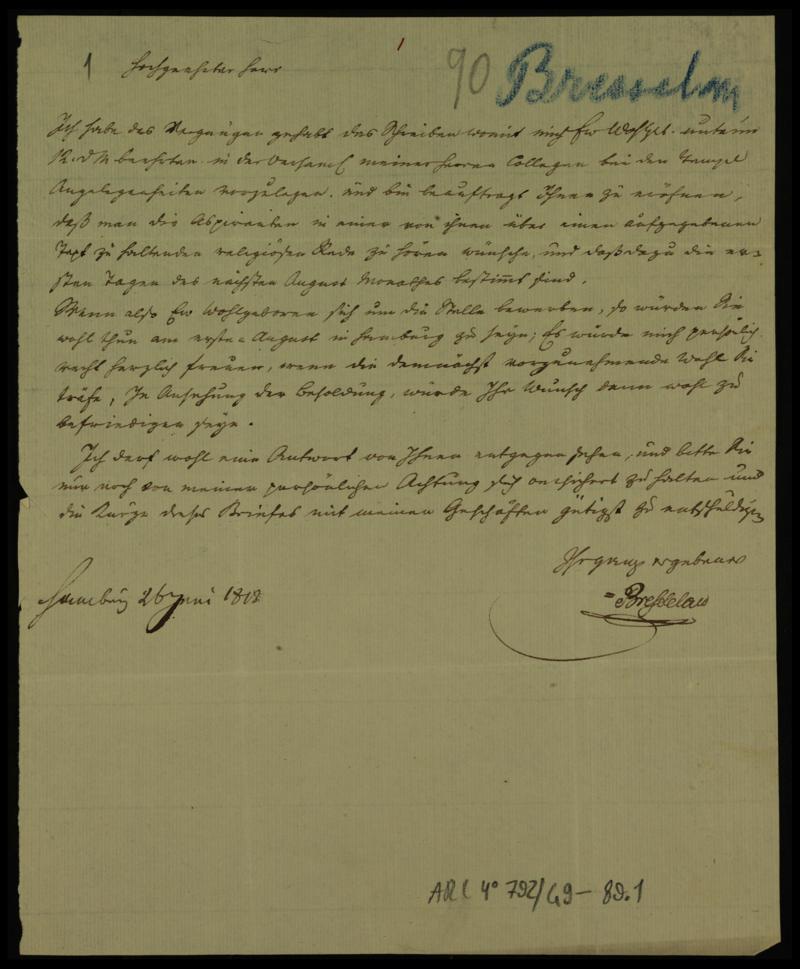 1
1
90 Bresselau
Hochgeehrter Herr
Ich habe das Vergnügen gehabt das Schreiben womit mich Ew Wohlgeb. unterm
d M beehrten in der Versaml meiner Herren Collegen bei den Tempel
Angelegenheiten vorzulegen. und bin beauftragt Ihnen zu eröfnen,
daß man die Aspiranten in einer von ihnen über einen aufgegebenen
Text zu haltenden religiösen Rede zu hören wünsche, und daß dazu die er-
sten Tagen des nächsten August Monathes bestimt sind.
Wenn also Ew Wohlgeboren sich um die Stelle bewerben, so würden Sie
wohl thun am ersten August in Hamburg zu seyn; Es würde mich persönlich
recht herzlich freuen, wenn die demnächst vorzunehmende Wahl Sie
träfe, In Ansehung der Besoldung, würde Ihr Wunsch dann wohl zu
befriedigen seyn.
Ich darf wohl eine Antwort von Ihnen entgegen sehen, und bitte Sie
nur noch von meiner persönlichen Achtung sich versichert zu halten und
die Kürze dieses Briefes mit meinen Geschäften gütigst zu entschuldigen
Ihr ganz ergebener
Bresselau
Hamburg 26 Juni 1818
ARC 4° 792/G9-89.1